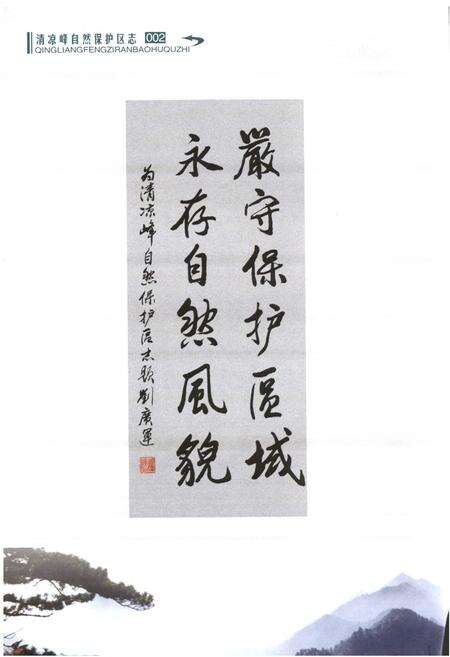 清凉峰自然保护区志 002
QINGLIANGFENGZIRANBAOHUQUZHI
嚴守保护區域
永存自然風貌
为清凉峰自然保护区志题 劉廣運